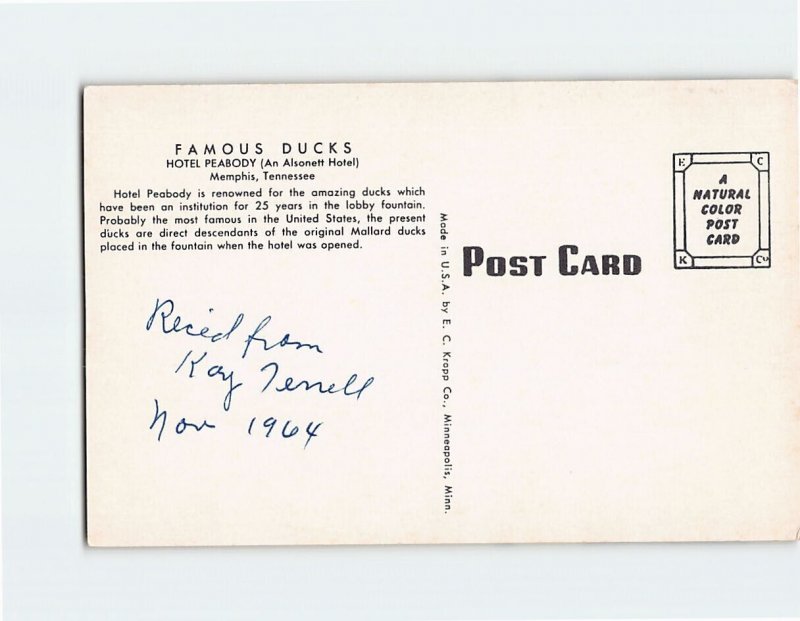 FAMOUS DUCKS
HOTEL PEABODY (An Alsonett Hotel)
Memphis, Tennessee
Hotel Peabody is renowned for the amazing ducks which
have been an institution for 25 years in the lobby fountain.
Probably the most famous in the United States, the present
ducks are direct descendants of the original Mallard ducks
placed in the fountain when the hotel was opened.
Recied from
Kay Terrell
Nov 1964
Made in U.S.A. by E. C. Kropp Co., Minneapolis, Minn.
POST CARD
E C
A
NATURAL
COLOR
POST
CARD
K Co